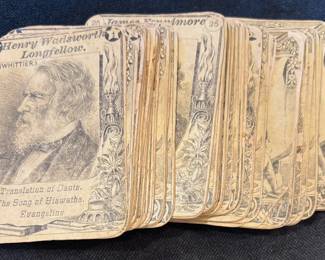 Henry Wadsworth
Longfellow.
WHITTIER
Translation of Dante.
The Song of Hiawatha.
Evangeline
James Fenimore